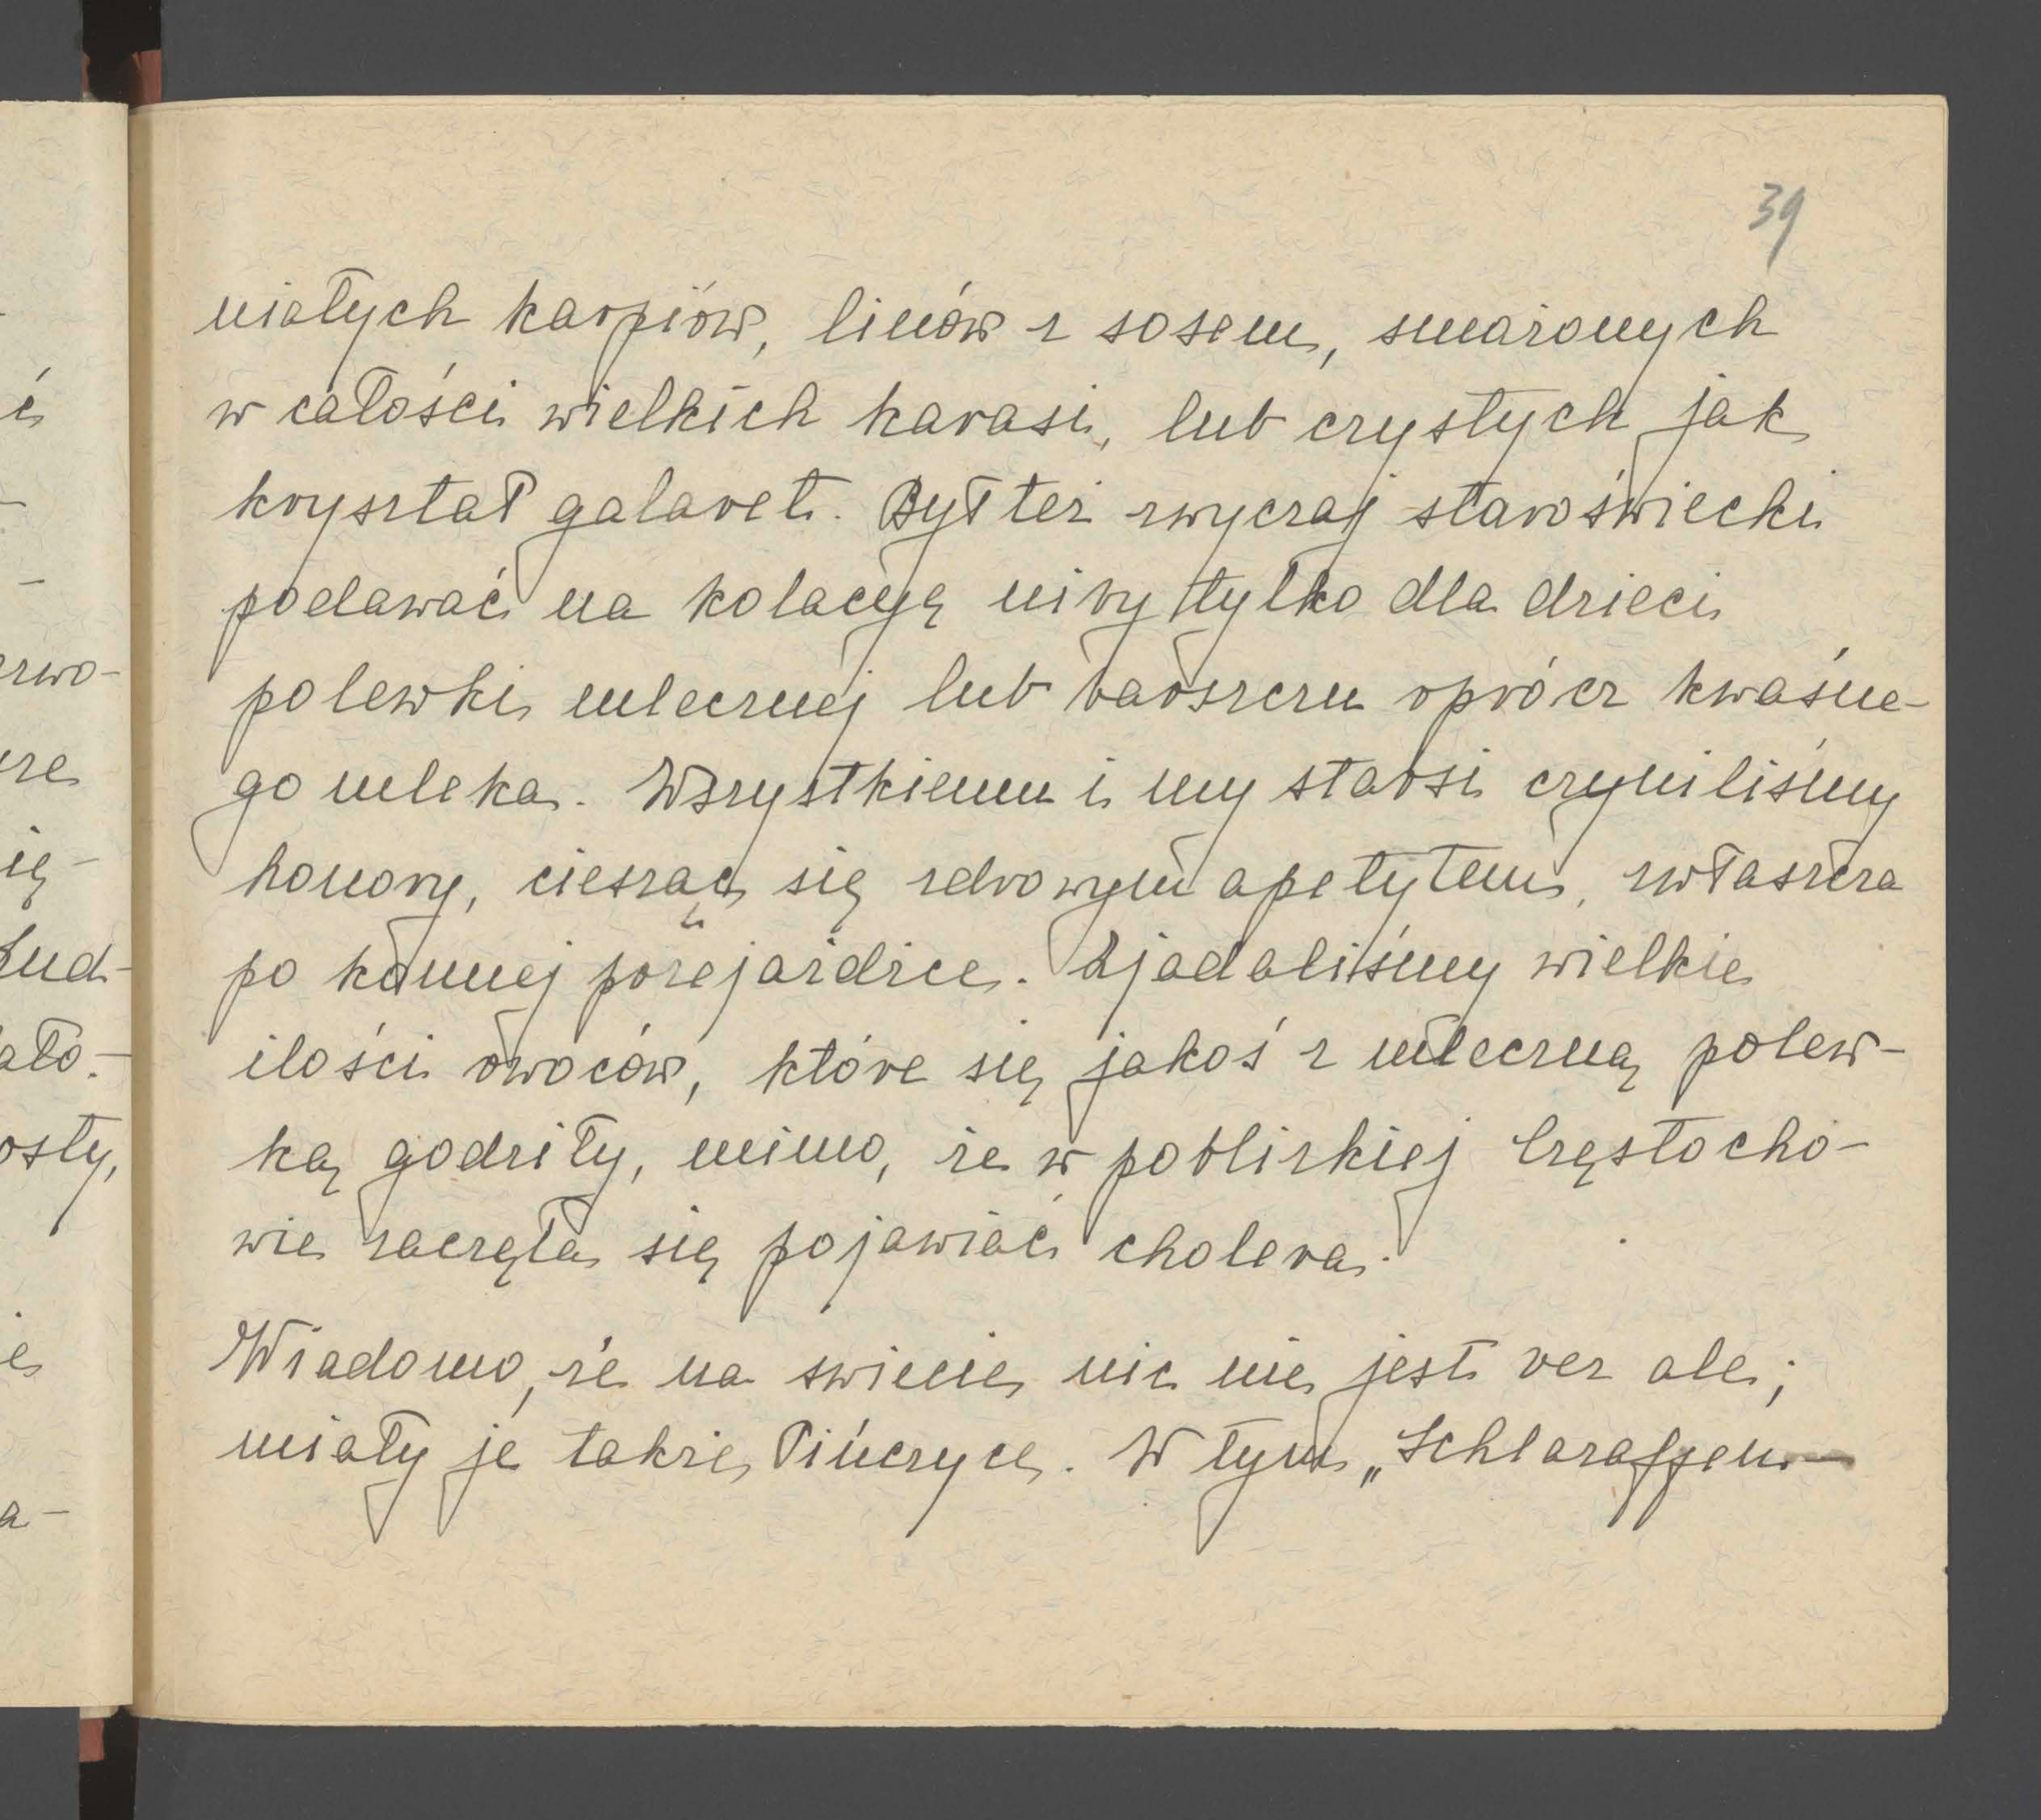 39
niałych karpiów, linów z sosem, smażonych
w całości wielkich karasi, lub czystych jak
kryształ galaret. Był też zwyczaj staroświecki
podawać na kolacyę niby tylko dla dzieci
polewki mlecznej lub barszczu oprócz kwaśne-
go mleka. Wszystkiemu i my starsi czyniliśmy
honory, ciesząc się zdrowym apetytem, zwłaszcza
po konnej przejażdżce. Zjadaliśmy wielkie
ilości owoców, które się jakoś z mleczną polew-
ką godziły, mimo, że w pobliskiej Częstocho-
wie zaczęła się pojawiać cholera.
Wiadomo, że na świecie nic nie jest bez ale;
miały je także Pińczyce. W tym „Schlaraffen-
ć
rwo-
ię-
ato-
osty,
a-